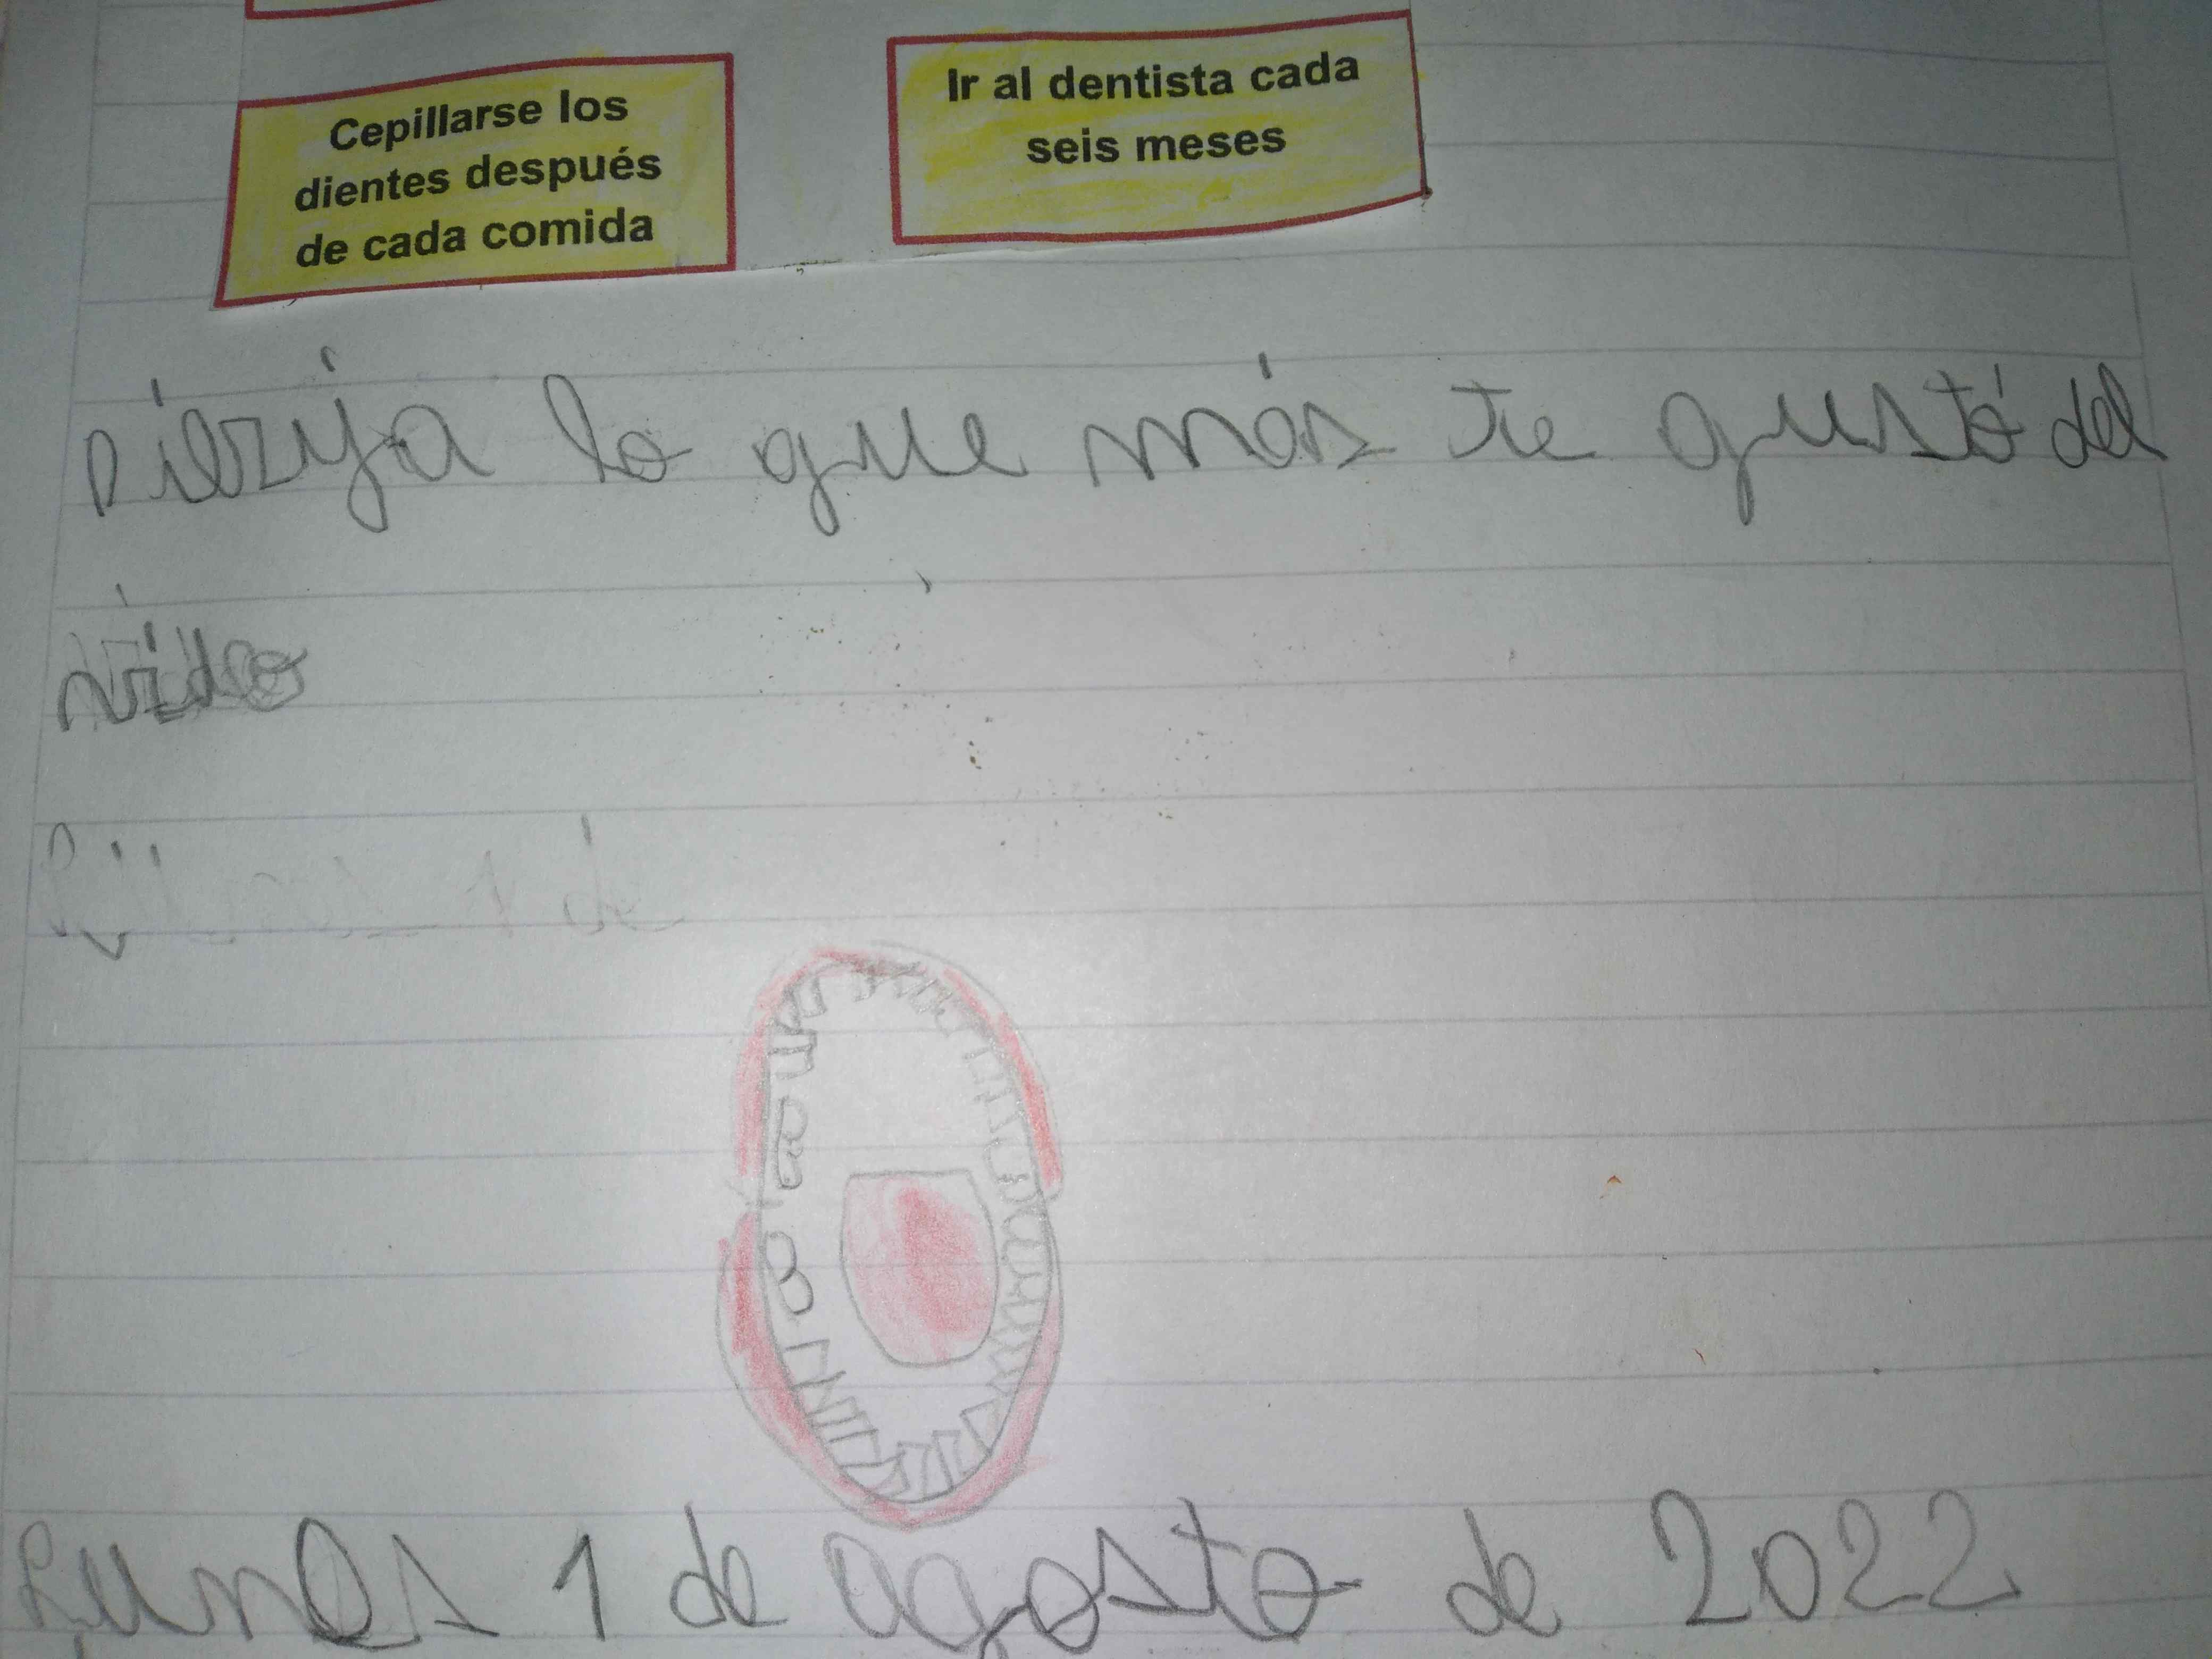 Cepillarse los
dientes después
de cada comida
Ir al dentista cada
seis meses
Dibuja lo que más te gustó del
video
Lunes 1 de
Lunes 1 de agosto de 2022